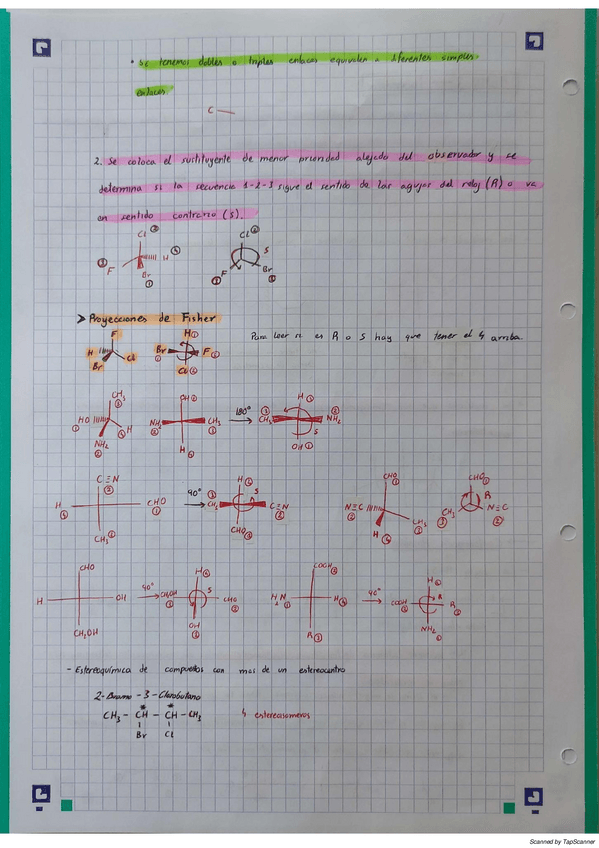 • Se tenemos dobles o triples enlaces equivalen a diferentes simples
enlaces
C
2. Se coloca el sustituyente de menor prioridad alejado del observador y se
determina si la secuencia 1-2-3 sigue el sentido de las agujas del reloj (R) o va
en sentido contrario (S).
Cl ② Cl ②
③ F H ④ S
Br ① ③ F Br ①
> Proyecciones de Fisher
Para leer si es R o S hay que tener el 4 arriba.
F H ④
H Cl Br ① F ③
Br Cl ②
CH₃ ③ CH ① H ④
① HO H ④ NH₂ ② CH₃ ③ 180° CH₃ ③ NH₂ ②
NH₂ ② H ④ S OH ①
C≡N ② H ④ CHO ① CHO ①
H ④ CHO ① 90° CH₃ ③ S C≡N ② N≡C ② CH₃ ③ R N≡C ②
CH₃ ③ CHO ① H ④ CH₃ ③
CHO H ④ COOH ② H ④
H OH 90° CH₂OH ③ S CHO ② H₂N ① H ④ 90° COOH ② R R ③
CH₂OH OH ① R ③ NH₂ ①
- Estereoquímica de compuestos con mas de un estereocentro
2-Bromo-3-Clorobutano
CH₃ - C*H - C*H - CH₃ 4 estereoisomeros
Br Cl
Scanned by TapScanner